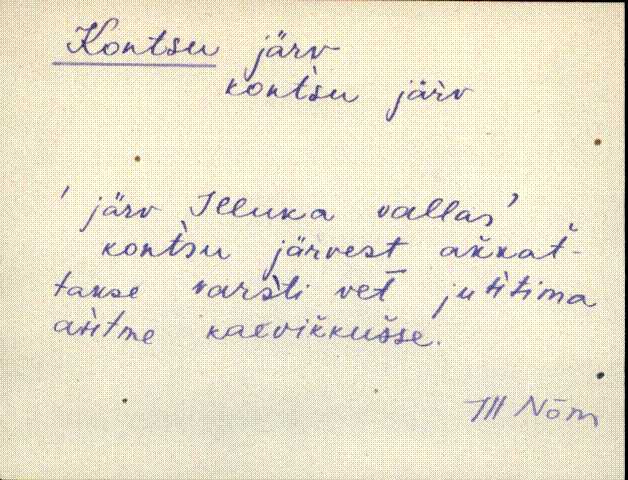 Kontsu järv
koǹtsu jär̀v
'järv Illuka vallas'
koǹtsu järvest ak̆kat̆-
takse vars̀ti vet̄ juh̀tima
ah̀tme kaevik̆kus̆se.
III Nõm